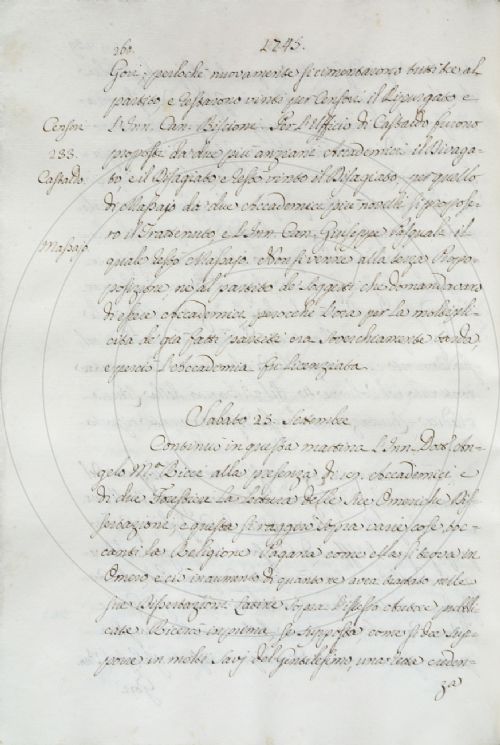 260. 1745.
Gori; perloché nuovamente si cimentarono tutti tre al
partito e restarono vinti per Censori il Ripurgato, e
Censori l'Inn. Can. Biscioni. Per l'Uffizio di Castaldo furono
233. proposti da due più anziani Accademici il Divaga-
Castaldo. to e il Bilagiato e restò vinto il Bilagiato per quello
di Massajo da due Accademici più novelli si propose-
Massajo ro il Trattenuto, e l'Inn. Can. Giuseppe Pasquale il
quale restò Massajo. Non si venne alla terza Propo-
posizione, né al partito de Soggetti che domandavano
di essere Accademici, perché l'ora per la moltipli-
cità de già fatti partiti era soverchiamente tarda,
e perciò l'Accademia fu licenziata.
Sabato 25. Settembre
Continuò in questa mattina l'Inn. Dott. An-
gelo M.ª Ricci alla presenza di sep. Accademici, e
di due Forestieri la lettura delle sue Omeriche Dis-
sertazioni, e questa si raggirò sopra varie cose toc-
canti la Religione Pagana come ella si trova in
Omero e ciò in aumento di quanto ne avea trattato nelle
sue Dissertazioni Latine sopra l'istesso Autore pubbli-
cate. Ricercò in prima se supposta come si dee sup-
porre in molti Savj del Gentilesimo, una vera creden-
za